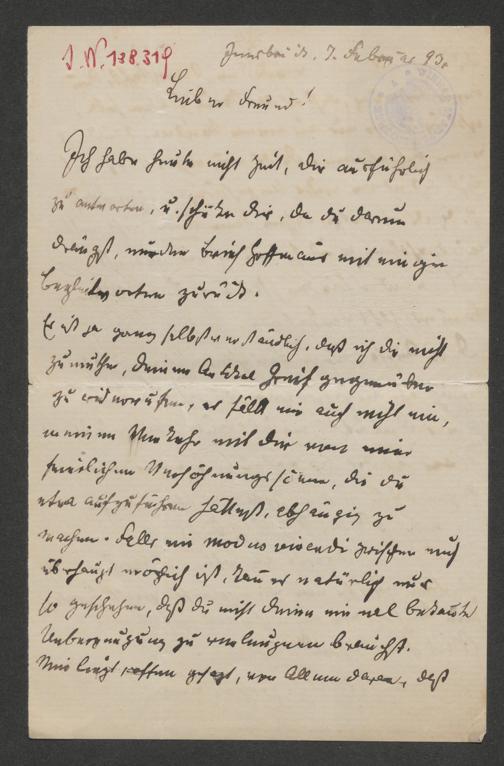 I. N. 138.319
Innsbruck, 7. Februar 93.
Lieber Freund!
Ich habe heute nicht Zeit, dir ausführlich
zu antworten, u. schicke dir, da du darum
drängst, nur den Brief Hoffmanns mit einigen
Begleitworten zurück.
Es ist ja ganz selbstverständlich, daß ich dir nicht
zumuthe, deinen Artikel Greif gegenüber
zu widerrufen, es fällt mir auch nicht ein,
meinen Verkehr mit dir von einer
feierlichen Versöhnungsscene, die du
etwa aufzuführen hättest, abhängig zu
machen. Falls ein modus vivendi zwischen euch
überhaupt möglich ist, kann er natürlich nur
so geschehen, daß du nicht deine einmal bekannte
Ueberzeugung zu verleugnen brauchst.
Mir liegt, offen gesagt, vor Allem daran, daß